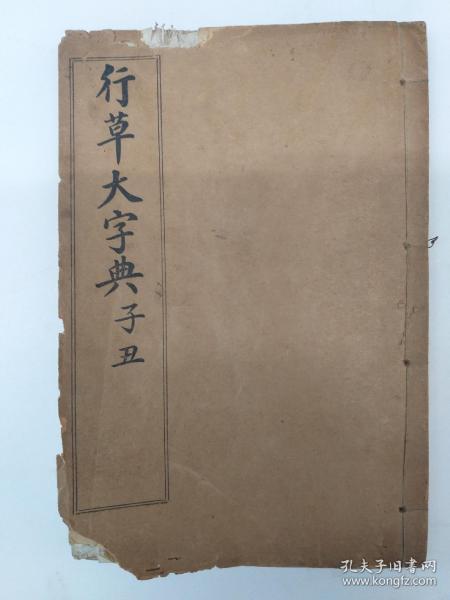 行草大字典子丑
孔夫子旧书网
www.kongfz.com